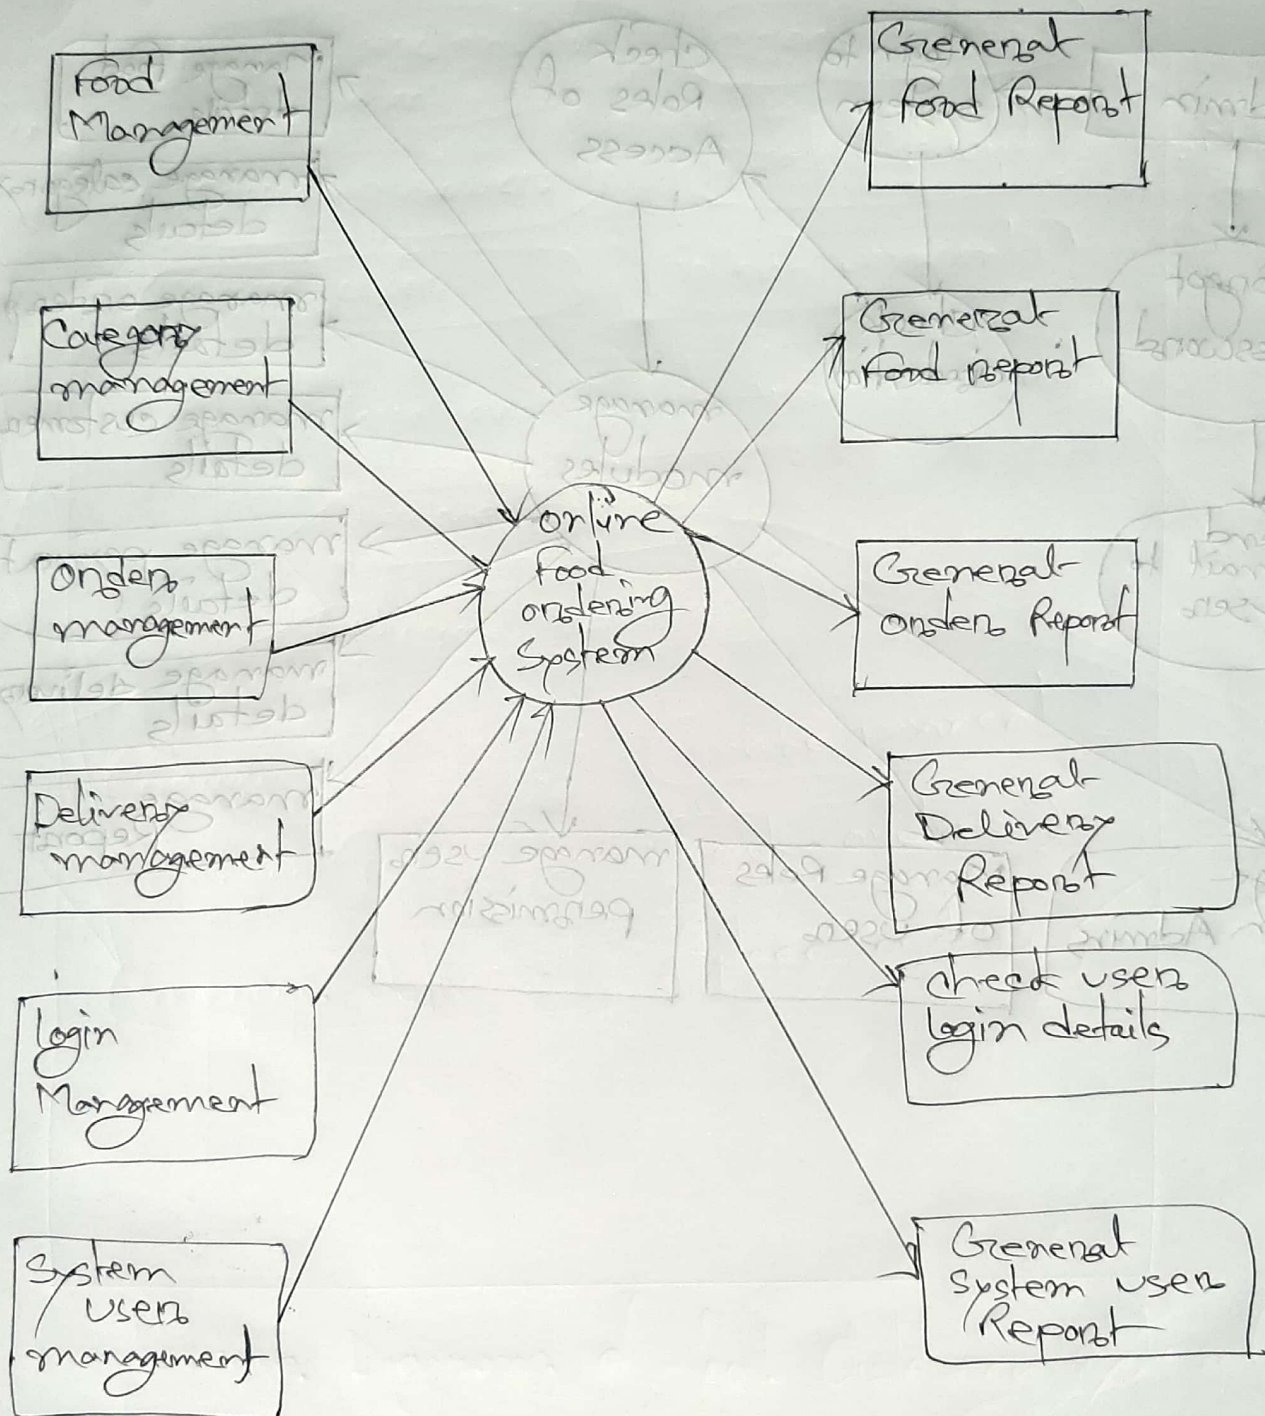 Food
Management
Category
management
Order
management
Delivery
management
Login
Management
System
User
management
Online
Food
ordering
System
Generat
Food Report
Generat
Food report
Generat
order Report
Generat
Delivery
Report
Check user
login details
Generat
System user
Report